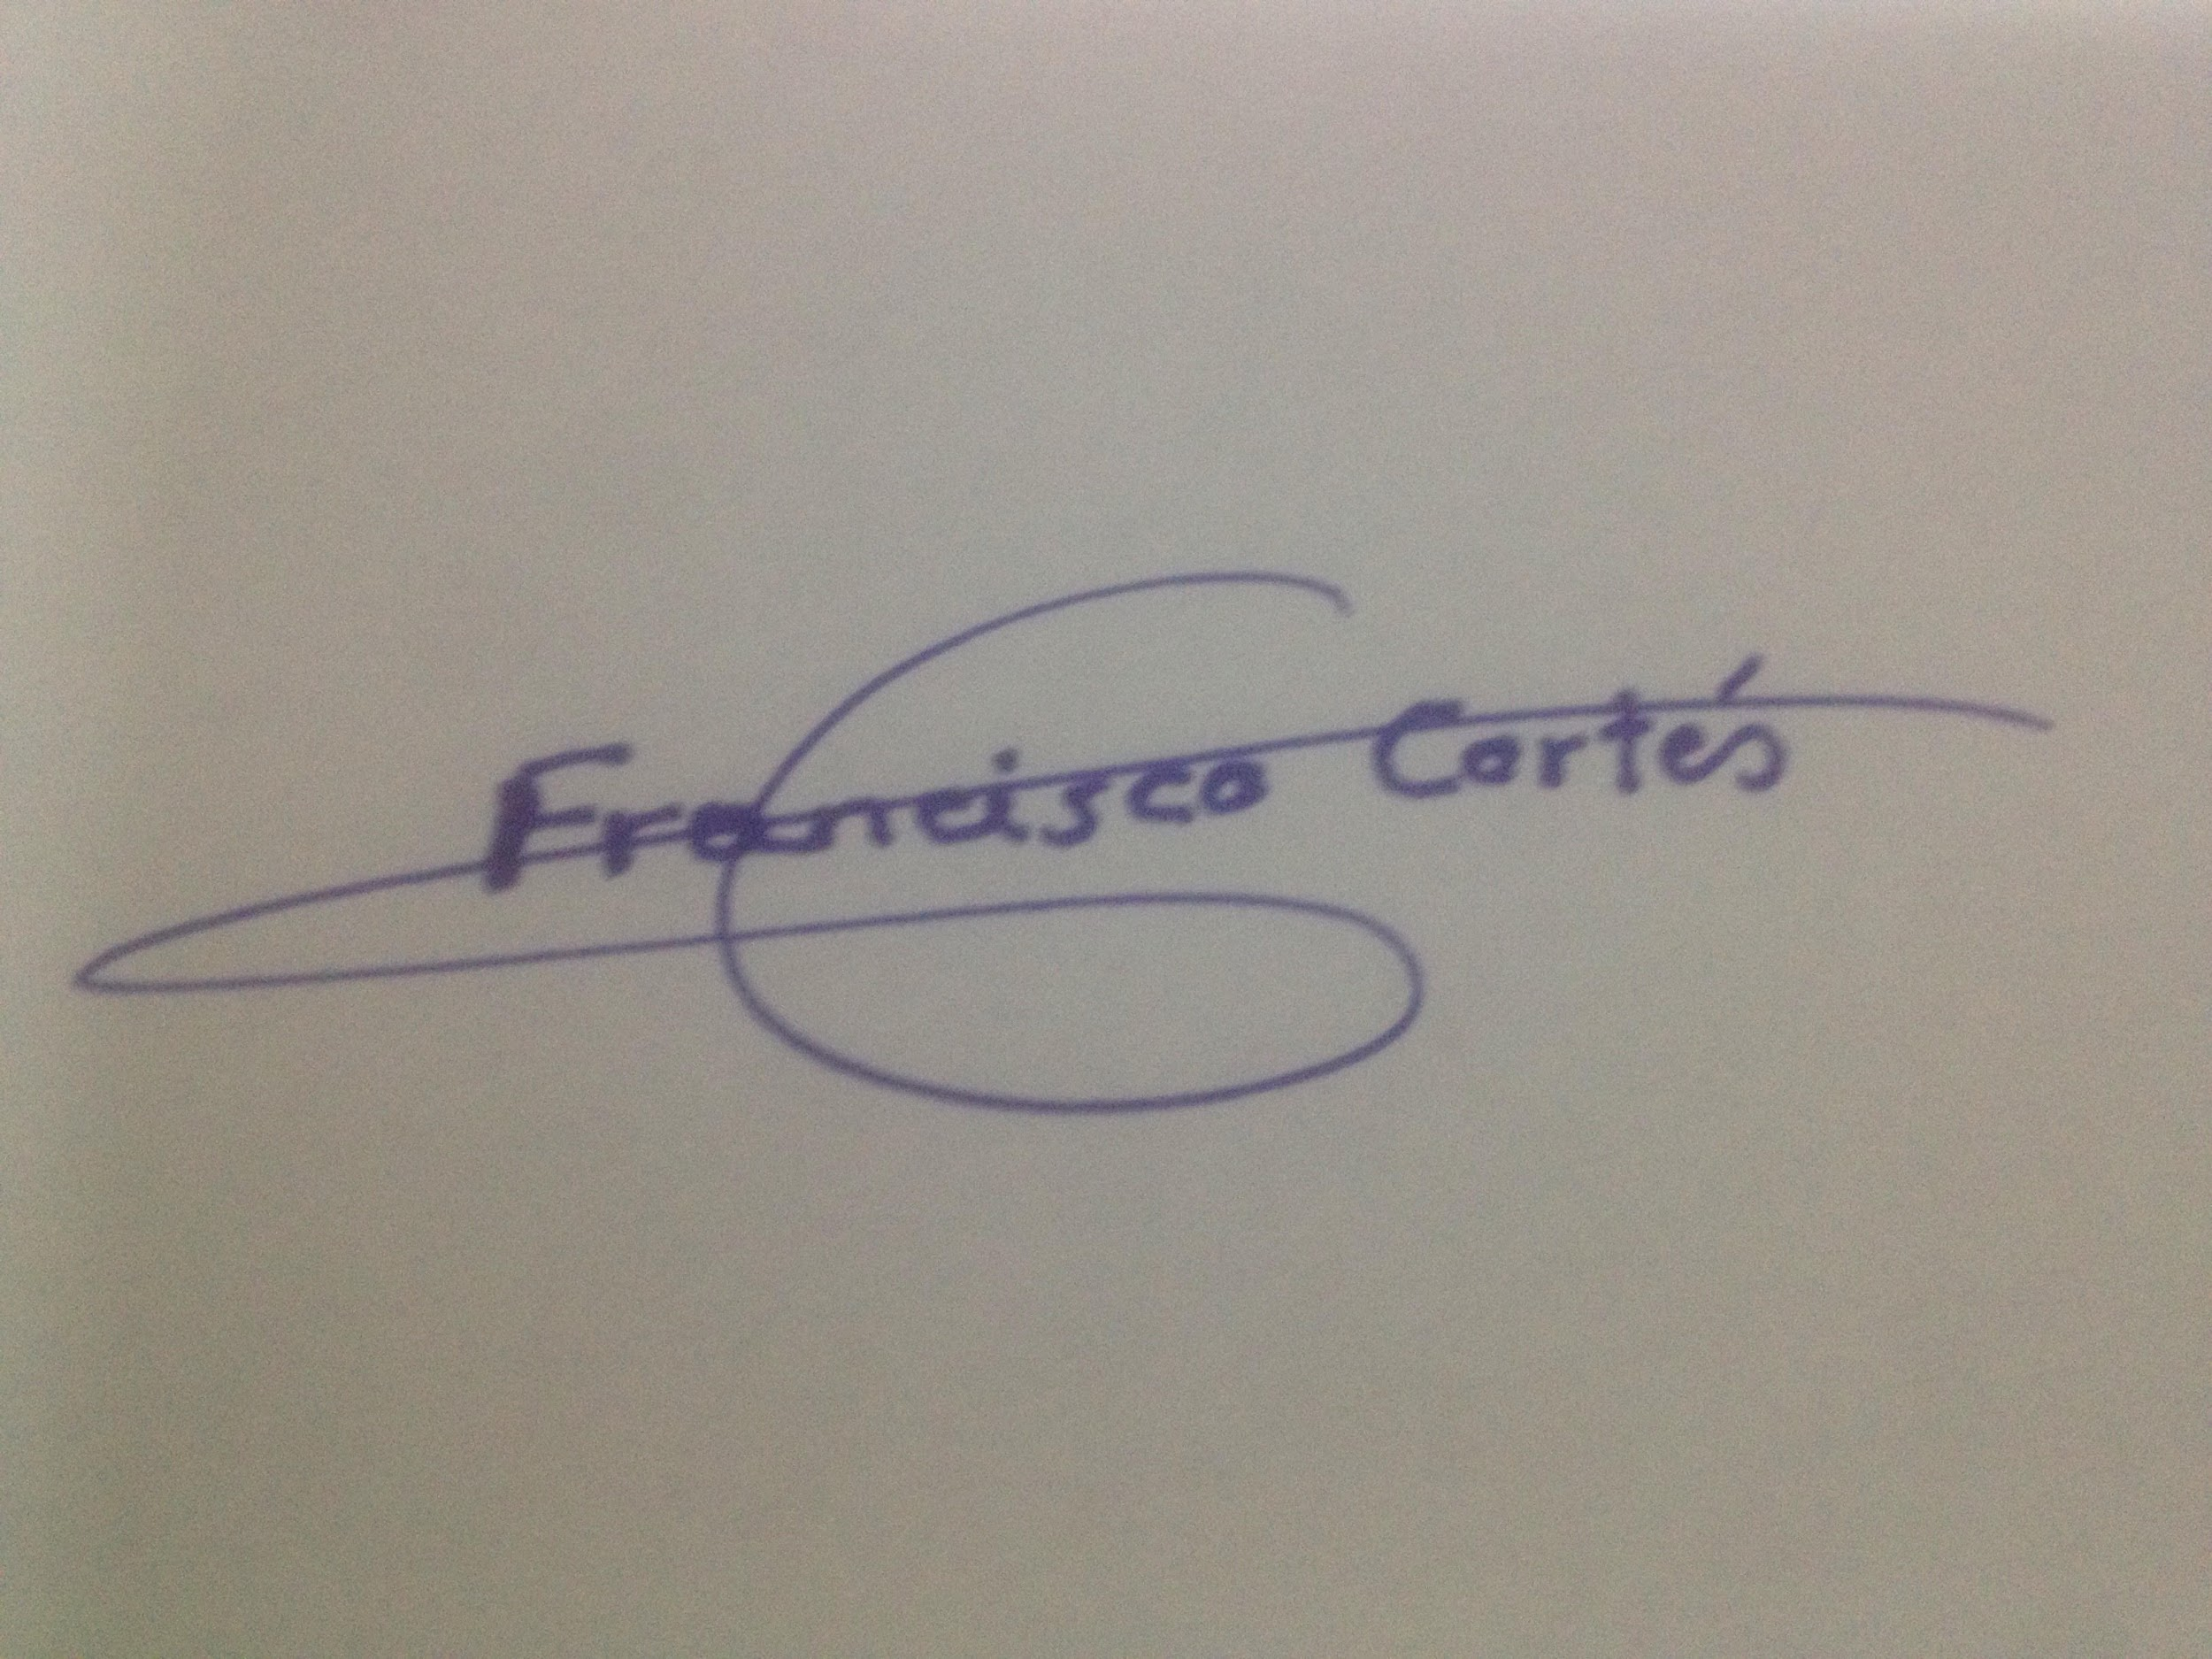 Francisco Cortés